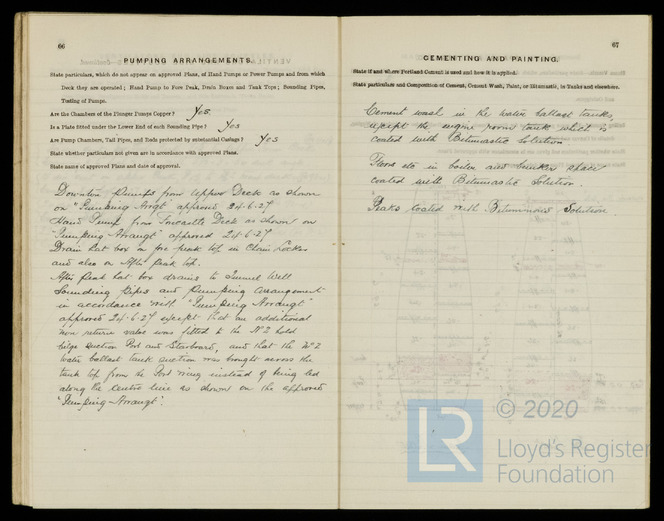 66
PUMPING ARRANGEMENTS.
State particulars, which do not appear on approved Plans, of Hand Pumps or Power Pumps and from which
Deck they are operated; Hand Pump to Fore Peak, Drain Boxes and Tank Tops; Sounding Pipes,
Testing of Pumps.
Are the Chambers of the Plunger Pumps Copper? Yes.
Is a Plate fitted under the Lower End of each Sounding Pipe? Yes
Are Pump Chambers, Tail Pipes, and Rods protected by substantial Casings? Yes
State whether particulars not given are in accordance with approved Plans.
State name of approved Plans and date of approval.
Downton Pumps from Upper Deck as shown
on "Pumping Arrgt" approved 24-6-27
Hand Pump from Forecastle Deck as shown on
"Pumping Arrangt" approved 24-6-27
Drain hat box on fore peak top in Chain Locker
and also on After peak top.
After peak hat box drains to Tunnel Well
Sounding Pipes and Pumping arrangement
in accordance with "Pumping Arrangt"
approved 24-6-27 except that an additional
non return valve was fitted to the No 2 hold
bilge suction Port and Starboard, and that the No 2
water ballast tank suction was brought across the
tank top from the Port wing instead of being led
along the centre line as shown on the approved
"Pumping Arrangt".
67
CEMENTING AND PAINTING.
State if and where Portland Cement is used and how it is applied.
State particulars and Composition of Cement, Cement Wash, Paint, or Bitumastic, in Tanks and elsewhere.
Cement wash in the water ballast tanks,
except the engine room tank which is
coated with Bitumastic Solution
Floors etc in boiler and bunker space
coated with Bitumastic Solution.
Peaks coated with Bituminous Solution
© 2020
LR
Lloyd's Register
Foundation